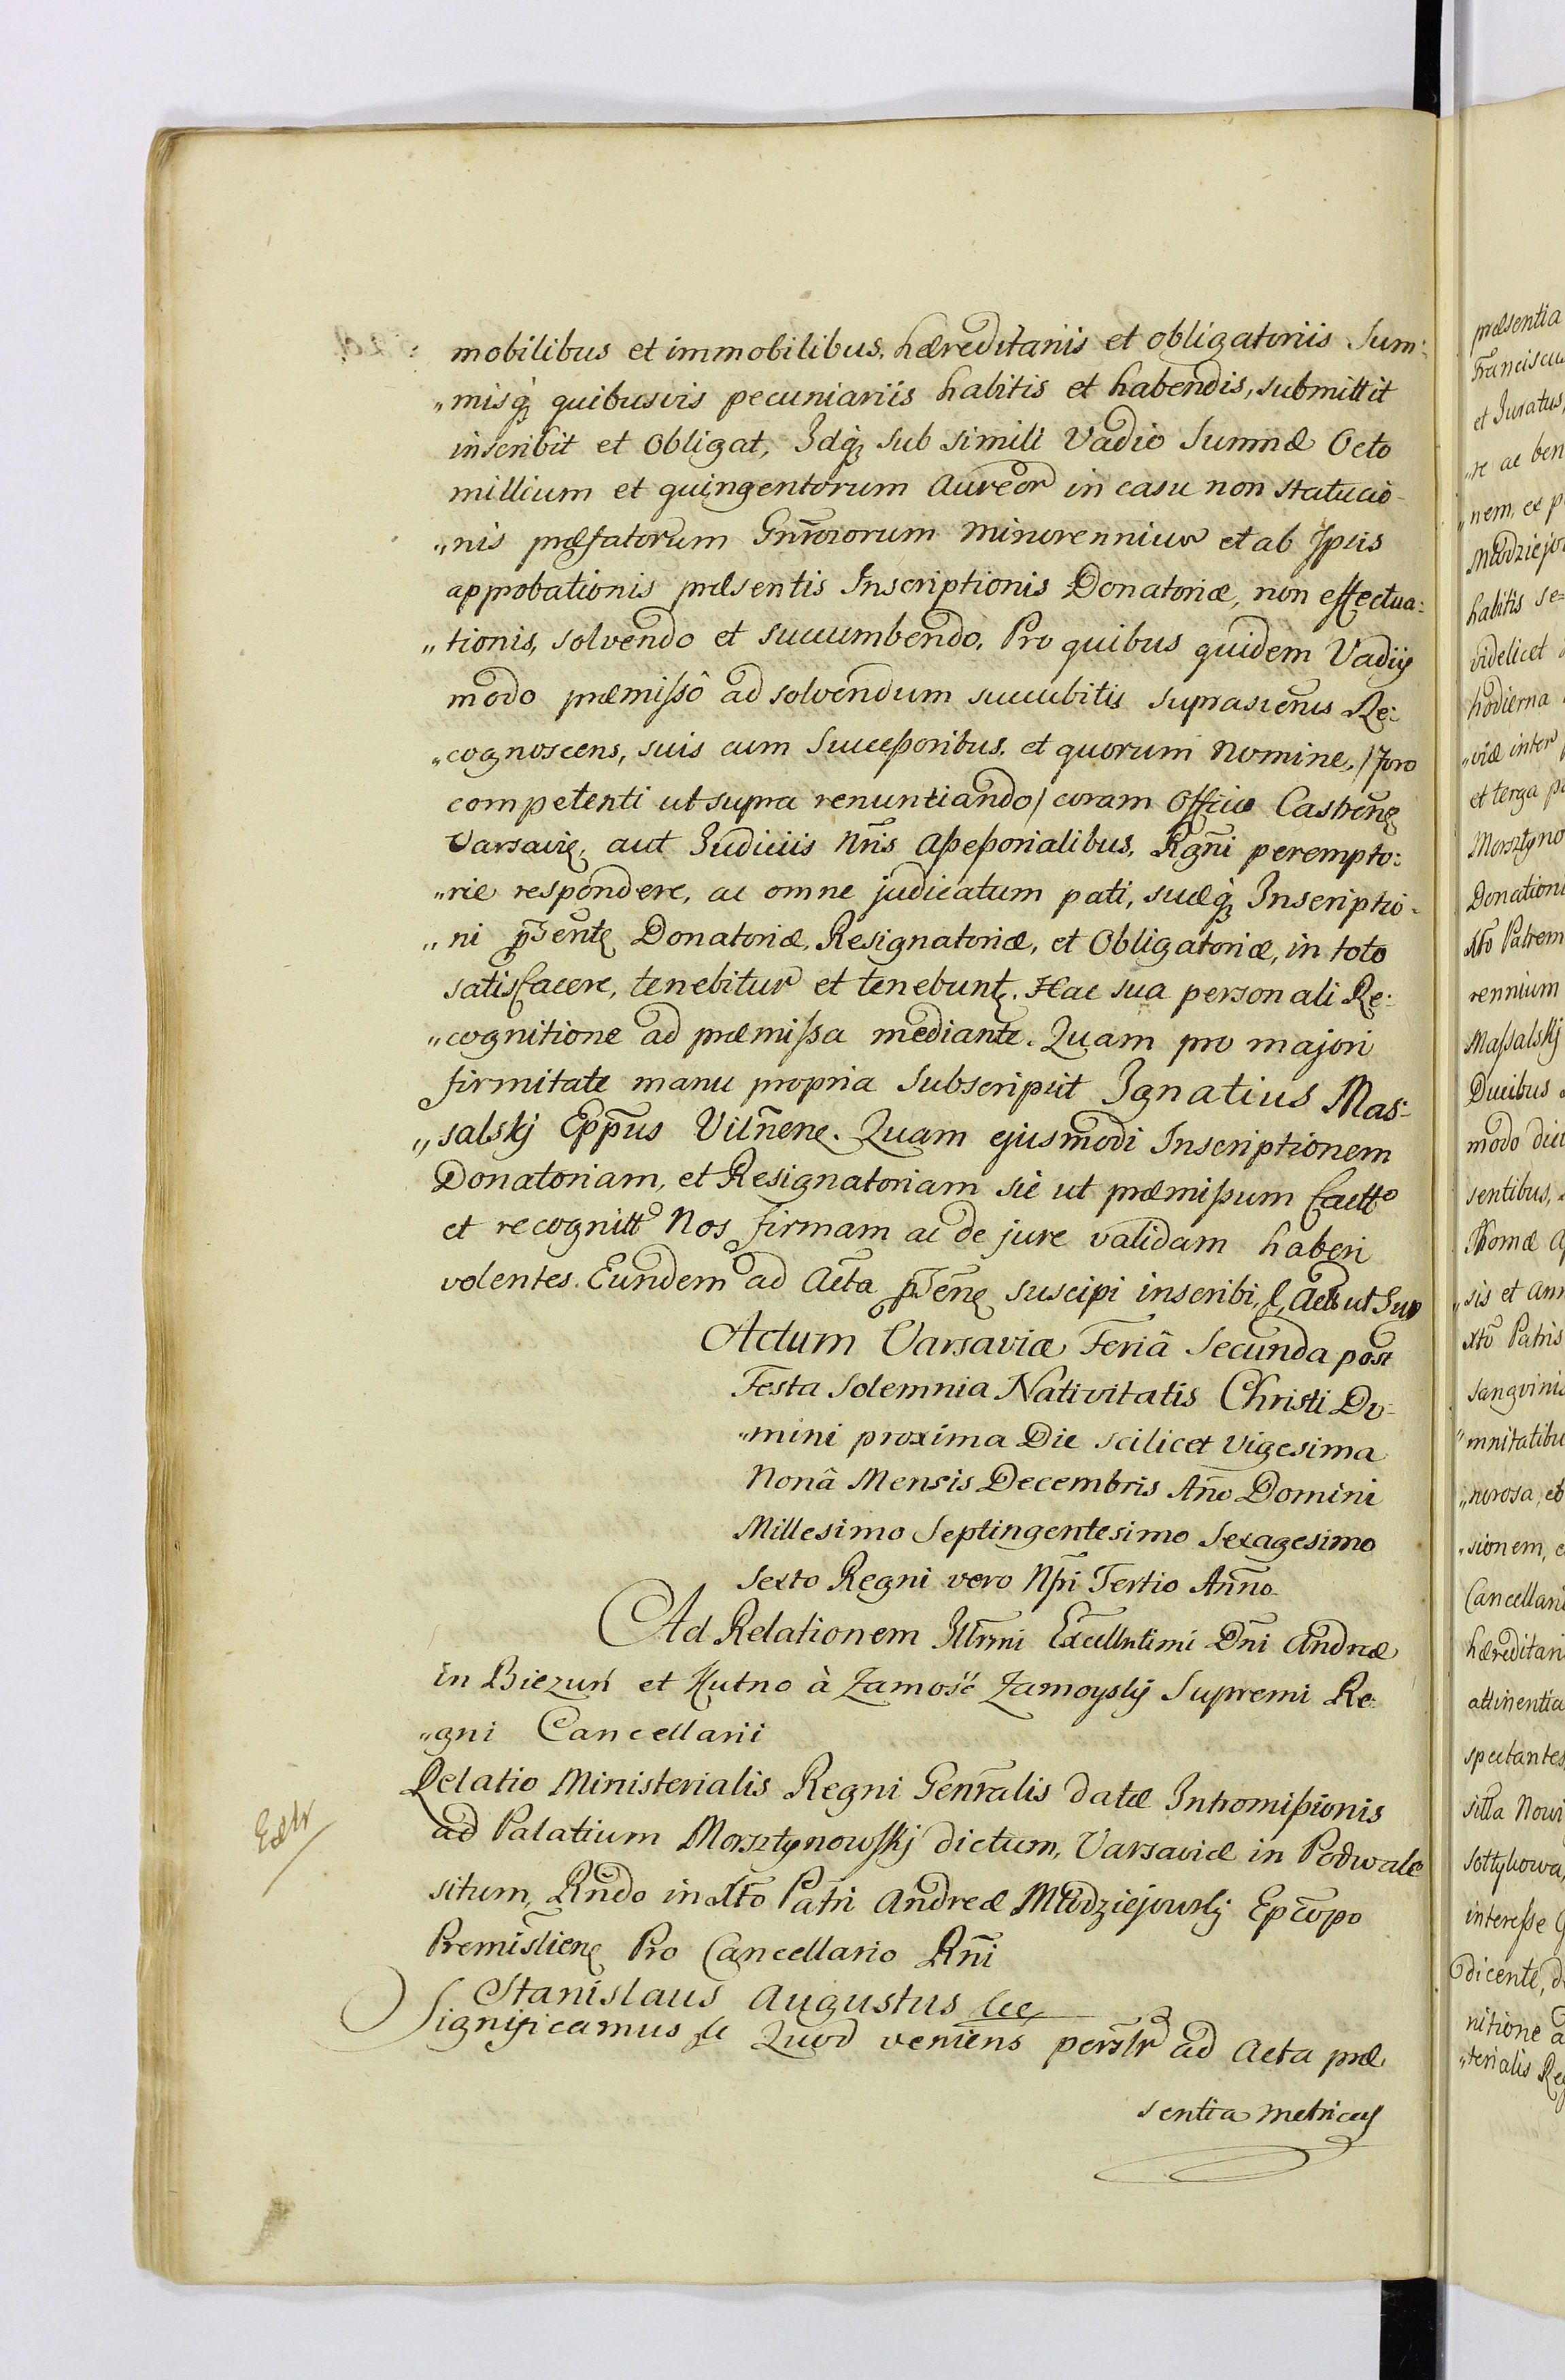 mobilibus et immobilibus, hæreditariis et obligatoriis Sum:
„misq́ quibusvis pecuniariis habitis et habendis, submittit
inscribit et obligat, Idq́ sub simili Vadio Summæ Octo
millium et quingentorum Aureor in casu non statucio-
„nis præfatorum Gnrosorum Minorennium et ab Ipsis
approbationis præsentis Inscriptionis Donatoriæ, non effectua:
„tionis, solvendo et succumbendo. Pro quibus quidem Vadijs
modo præmissô ad solvendum succubitis suprascrius Re:
„cognoscens, suis cum Successoribus, et quorum Nomine, /foro
competenti ut supra renuntiando/ coram Officio Castrenę
Varsavię, aut Judiciis Nris Assessorialibus, Rgni perempto:
„rie respondere, ac omne judicatum pati, suæq́ Inscriptio-
„ni pñentę Donatoriæ, Resignatoriæ, et Obligatoriæ, in toto
satisfacere, tenebitur et tenebunt. Hac sua personali Re:
„cognitione ad præmissa mediante. Quam pro majori
firmitate manu propria subscripsit Ignatius Mas:
„salskj Eppus Vilnene. Quam ejusmodi Inscriptionem
Donatoriam, et Resignatoriam sic ut præmissum factt
et recognitt Nos firmam ac de jure validam haberi
volentes. Eundem ad Acta pñenę suscipi inscribi, &, Actt ut Sup
Actum Varsaviæ Feriâ Secunda post
Festa solemnia Nativitatis Christi Do-
„mini proxima Die scilicet Vigesima
Nonâ Mensis Decembris Año Domini
Millesimo Septingentesimo Sexagesimo
Sexto Regni vero Nri Tertio Anno
Ad Relationem Illrmi Excellntimi Dni Andreæ
in Biezuń et Kutno à Zamość Zamoyskj Supremi Re:
„gni Cancellarii
Relatio Ministerialis Regni Genralis datæ Intromissionis
ad Palatium Morsztynowskj dictum, Varsaviæ in Podwale
situm, Rndo in Xto Patri Andreæ Młodziejowskj Epcopo
Premislienę Pro Cancellario Rni
Stanislaus Augustus &c
Significamus &c Quod veniens persltr ad Acta præ
sentia Metrices
Extr